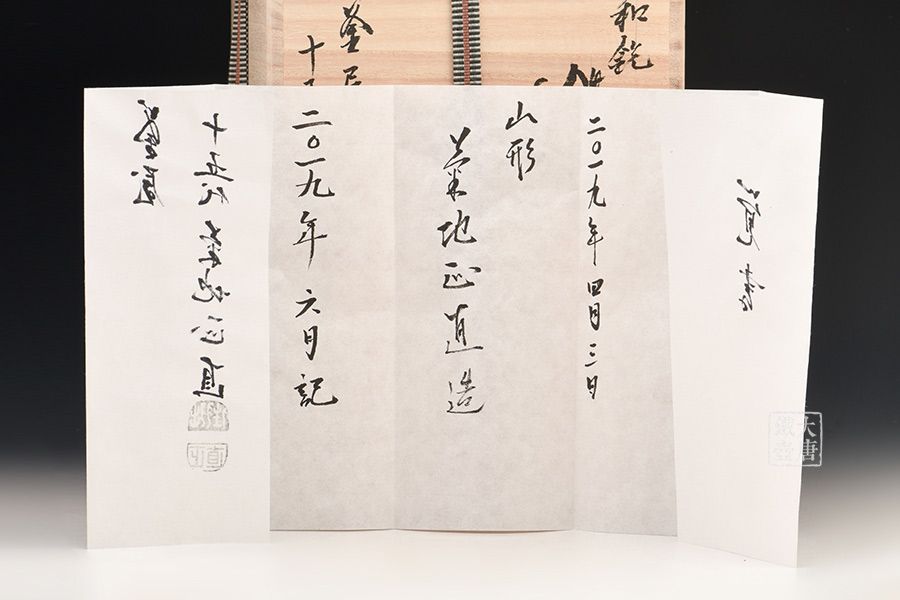 和銑
釜
十
覚書
二〇一九年四月三日
山形
菊地正直造
二〇一九年六月記
十五代 菊地正直
大唐
鐵壺